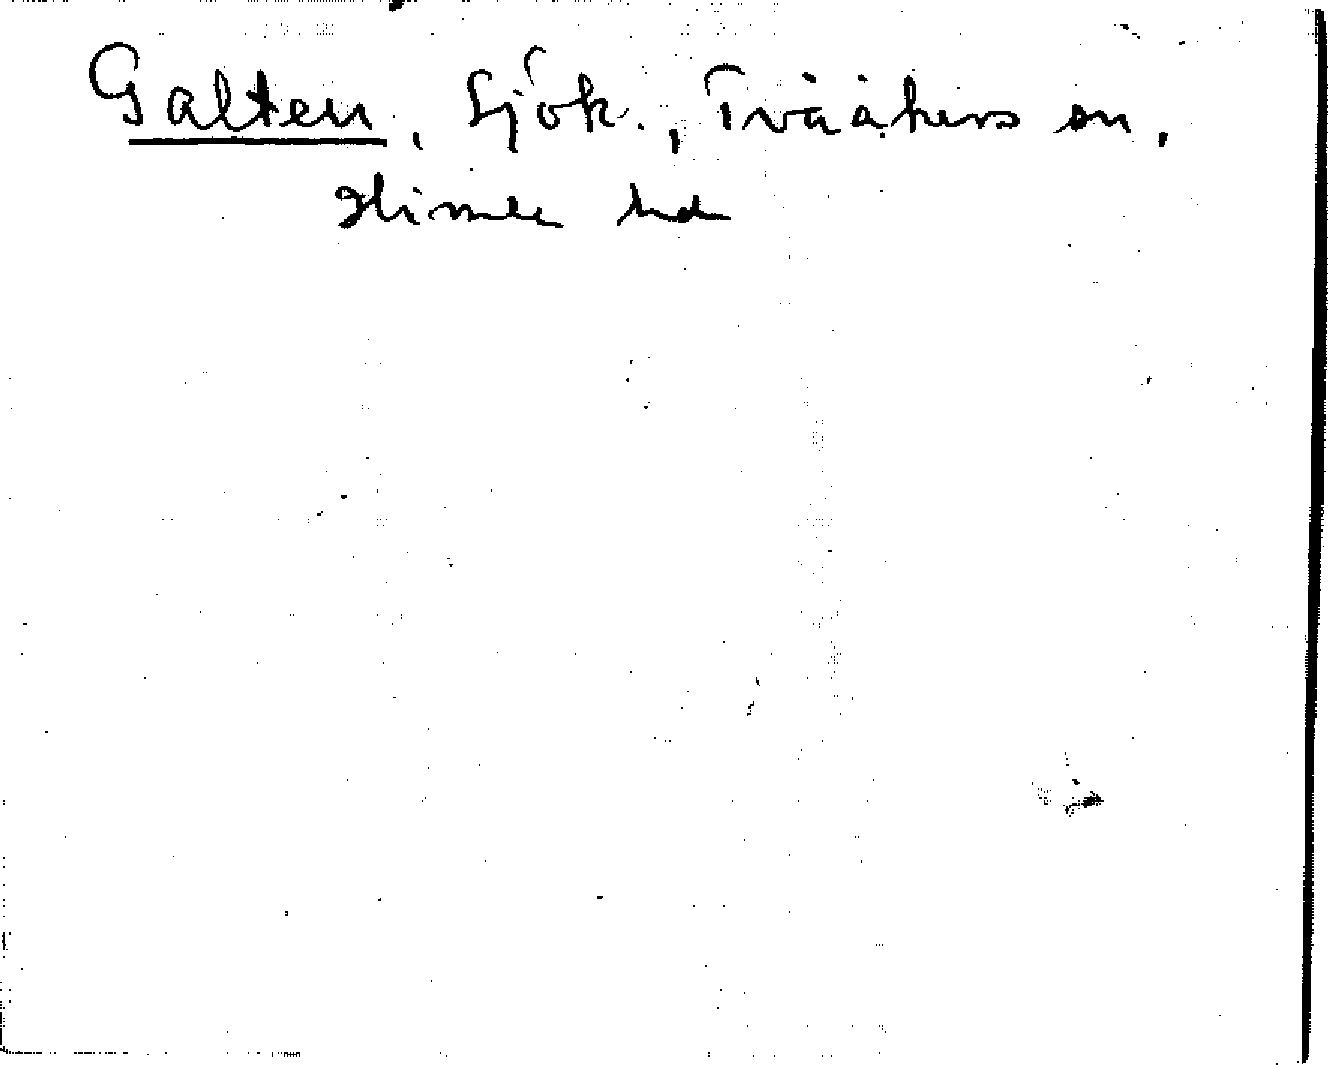 Galten, Sjök., Tvååkers sn,
Himle hd